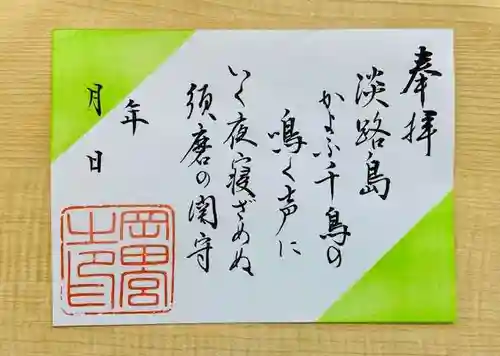 奉拝
淡路島
かよふ千鳥の
鳴く声に
いく夜寝ざめぬ
須磨の関守
年
月
日
岡田宮
之印